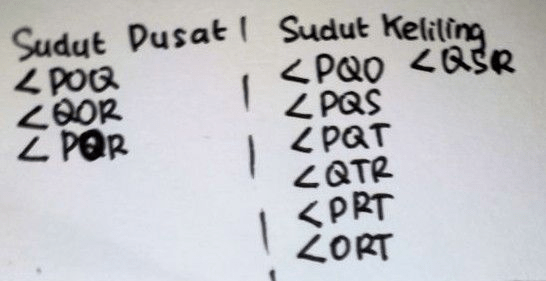 Sudut Pusat | Sudut Keliling
<POQ <PQO <QSR
<QOR <PQS
<POR <PQT
<QTR
<PRT
<ORT